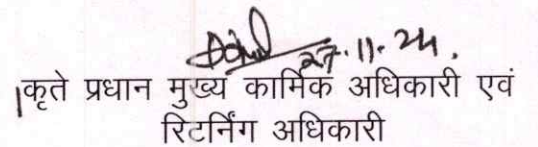 27.11.24.
कृते प्रधान मुख्य कार्मिक अधिकारी एवं
रिटर्निंग अधिकारी